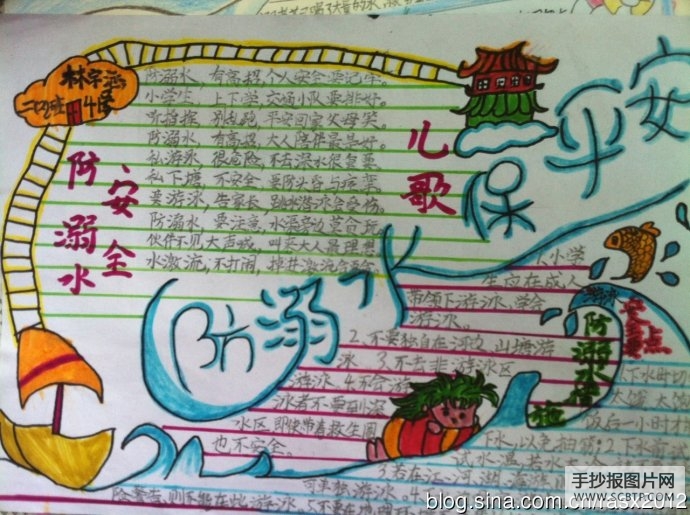 林字涵
二四班 4号
防溺水安全
儿歌
防溺水，有高招，个人安全要记牢。
小学生，上下学，交通小队要排好。
听指挥，别乱跑，平安回家父母笑。
防溺水，有高招，大人陪伴最最好。
私游泳，很危险，不去深水很重要。
私下塘，不安全，要防头昏与
要游泳，告家长，跳水游泳会受伤。
防溺水，要注意，水渠旁边莫贪玩
伙伴不见大声喊，叫来大人最理想
水激流，不打闹，掉井激流
防溺水 保平安
1.小学
生应在成人
带领下游泳、学会
游泳。
2.不要独自在河边、山塘游
泳 3.不去非游泳区
游泳。4.不会游
泳者不要到深
水区，即使带着救生圈
也不安全。
防溺水措施
游泳
安全要点
下水时切
太饿、太饱
饭后一小时才
下水，以免抽筋；2.下水前
试水温，若水
3.若在江、河、湖、海
可单独游泳。4.
险警告，则不能在此游泳。5.不要在地理
手抄报图片网
WWW.SCBTP.COM
blog.sina.com.cn/rasx2012